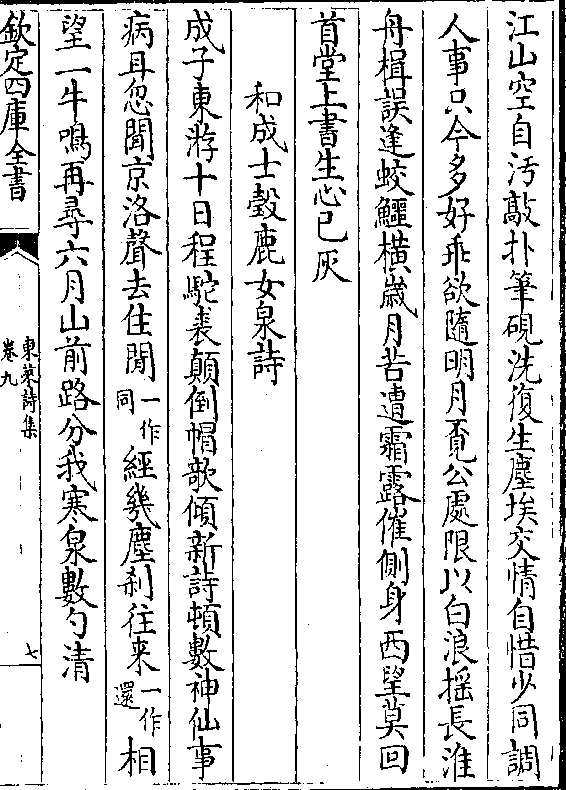 江山空自汚敲扑筆硯洗復生塵埃交情自惜少同調
人事只今多好乖欲隨明月覓公處限以白浪揺長淮
舟楫誤逢蛟鱷横歳月苦遭霜露催側身西望莫回
首堂上書生心已灰
和成士瑴鹿女泉詩
成子東游十日程駝裘顛倒帽欹傾新詩頓數神仙事
病耳忽聞京洛聲去住閒一作同經幾塵刹往来一作還相
望一牛鳴再尋六月山前路分我寒泉數勺清
欽定四庫全書
東萊詩集
卷九
七